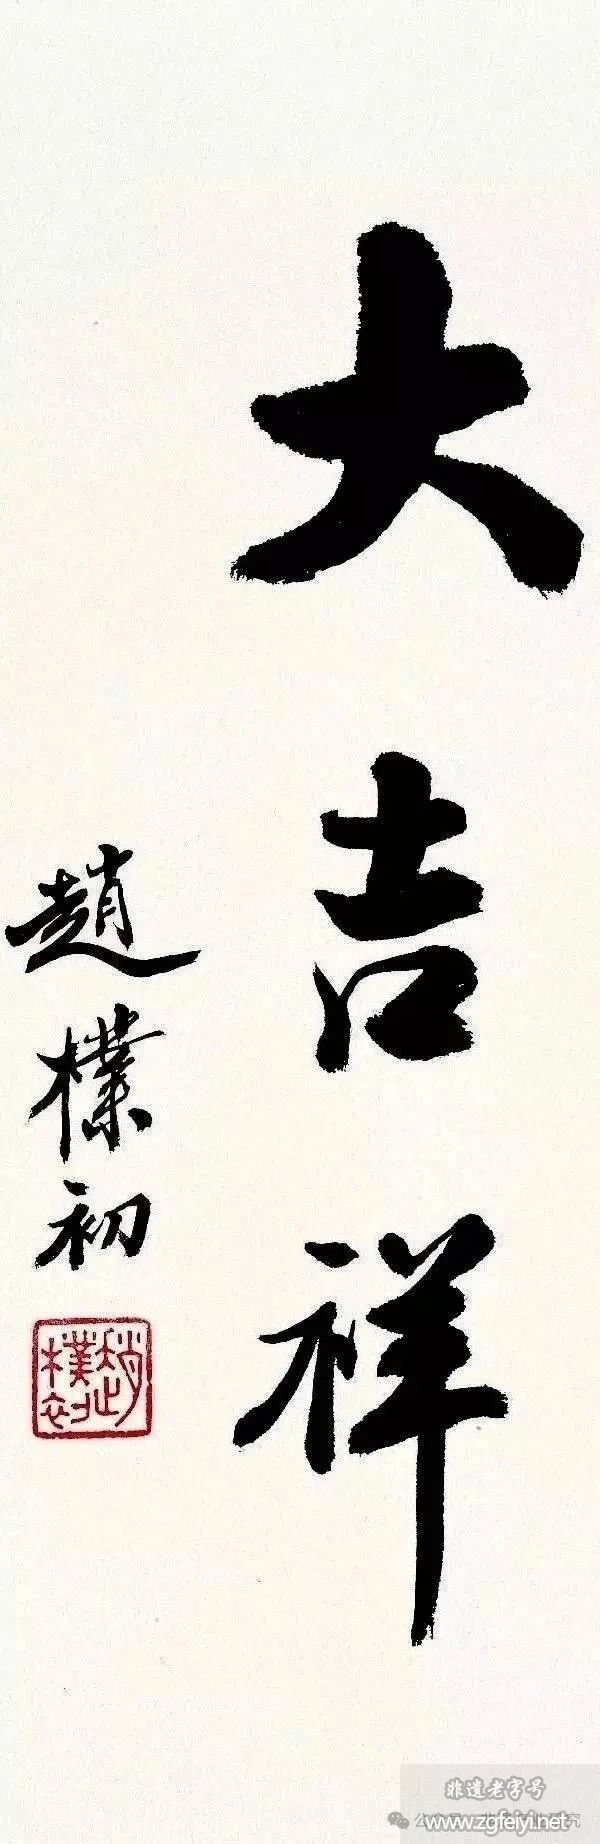 大吉祥
趙樸初
趙樸初
非遗老字号
www.zgfeiyi.net